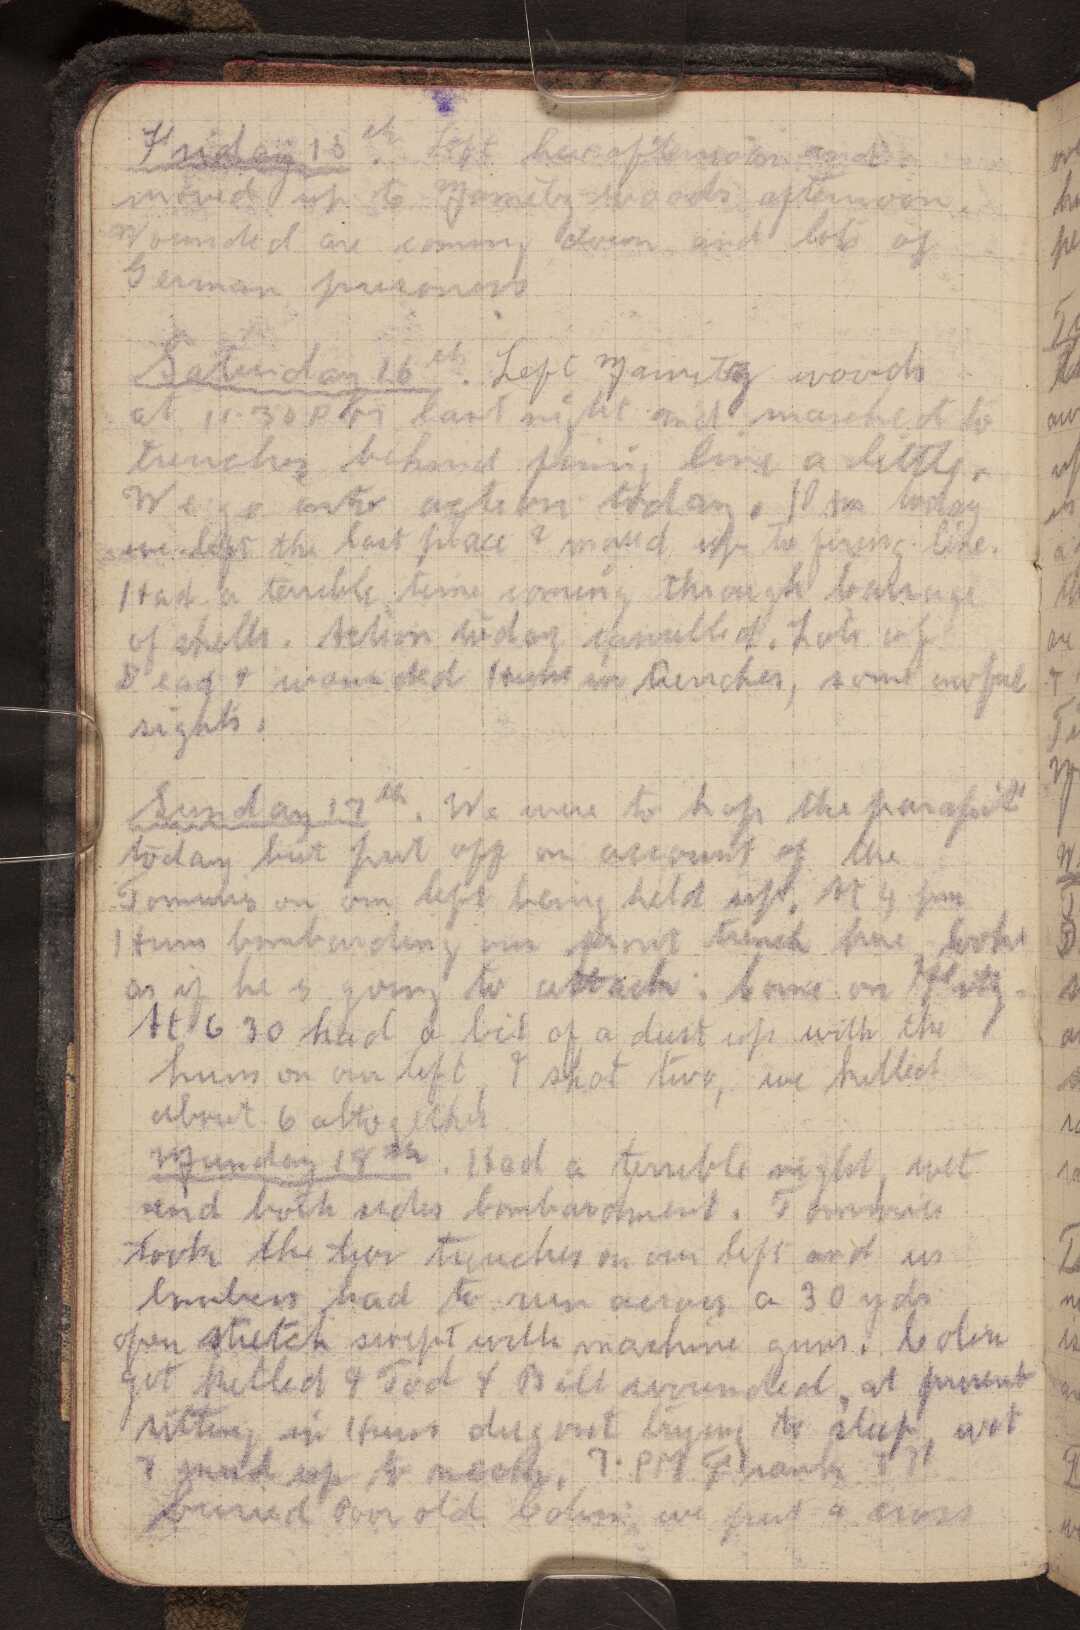 Friday 15th. Left here afternoon and
moved up to Mametz woods afternoon.
Wounded are coming down and lots of
German prisoners
Saturday 16th. Left Mametz woods
at 11.30 PM last night and marched to
trenches behind firing line a little.
We go into action today. 1 Pm today
we left the last place & moved up to firing line.
Had a terrible time coming through barrage
of shells. Action today cancelled. Lots of
Dead & wounded Huns in trenches, some awful
sights.
Sunday 17th. We were to hop the parapit
today but put off on account of the
Tommies on our left being held up. At 4 pm
Huns bombarding our front trench here, looks
as if he is going to attack. Come on Fritz.
At 6 30 had a bit of a dust up with the
huns on our left, I shot two, we killed
about 6 altogether
Munday 18th. Had a terrible night, wet
and both sides bombardment. Tommies
took the two trenches on our left and us
bombers had to run across a 30 yds
open stretch swept with machine guns. Colin
got killed & Tod & Bill wounded, at present
sitting in Huns dugout trying to sleep, wet
& mud up to neck. 7. PM Frank & I
buried Poor old Colin, we put a cross